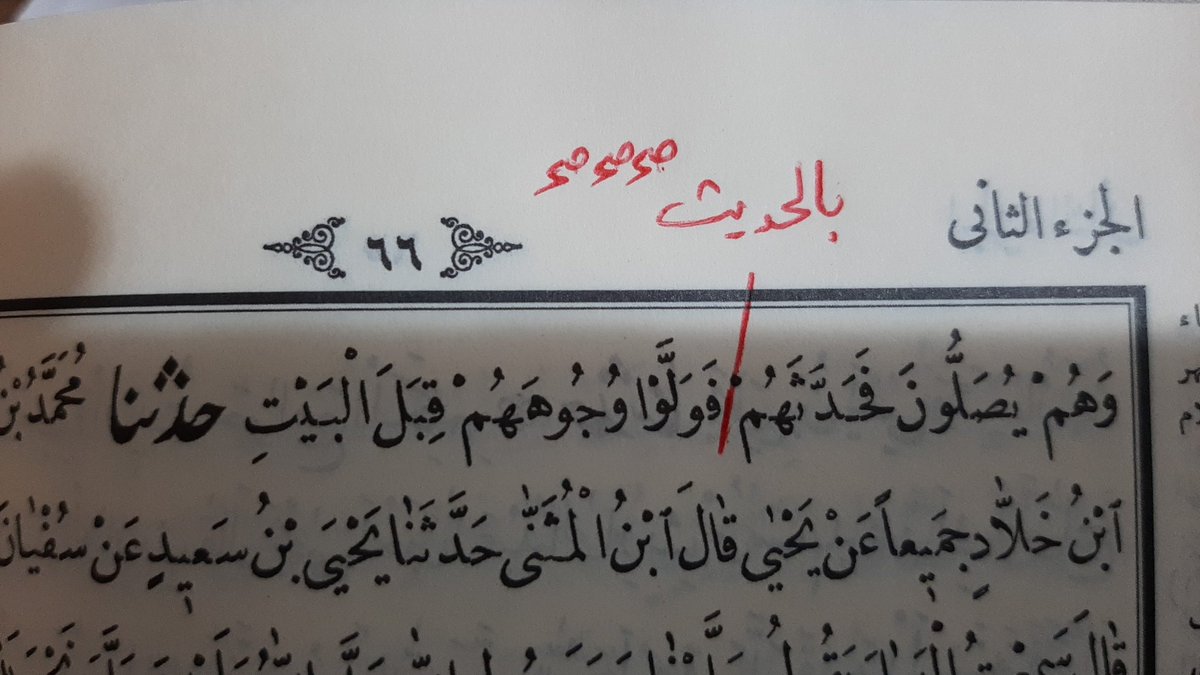 بالحديث صح صح صح
الجزء الثانى
٦٦
وَهُمْ يُصَلُّونَ فَحَدَّثَهُمْ فَوَلَّوْا وُجُوهَهُمْ قِبَلَ الْبَيْتِ حدثنا مُحَمَّدُ بْنُ
ابْنُ خَلَّادٍ جَمِيعاً عَنْ يَحْيٰي قَالَ ابْنُ الْمُثَنّٰى حَدَّثَنَا يَحْيَى بْنُ سَعِيدٍ عَنْ سُفْيَانَ
قَالَ